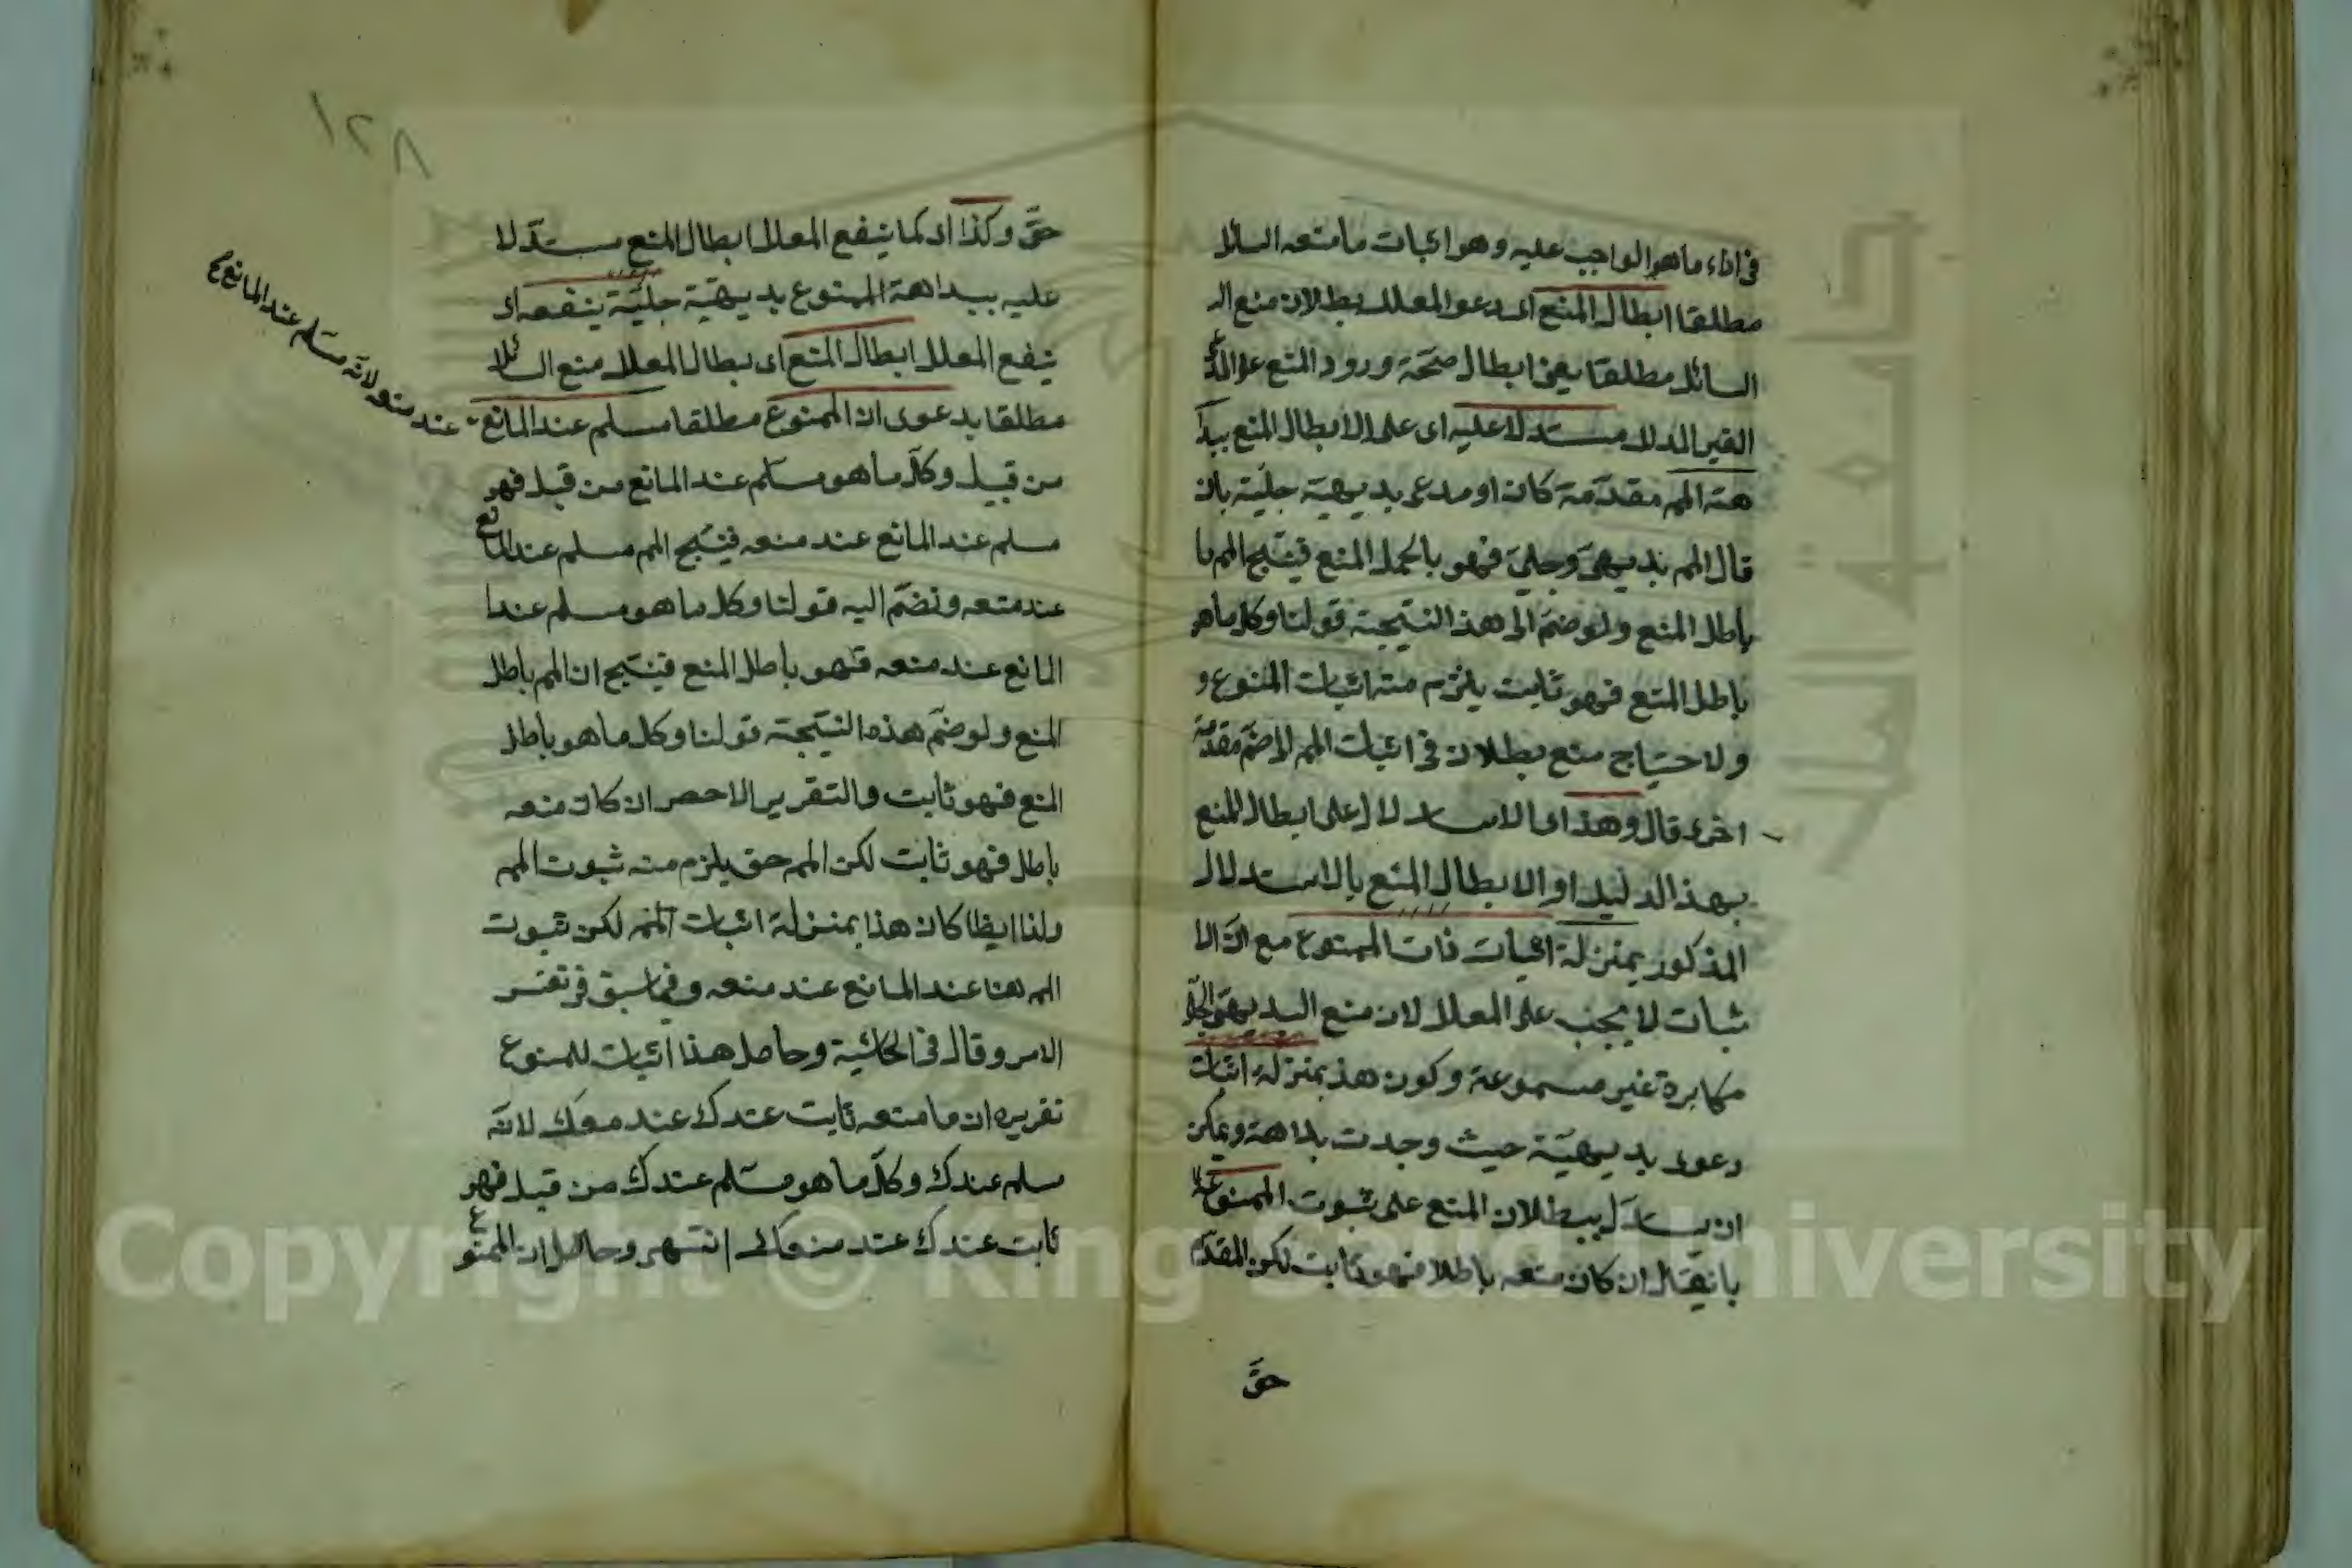 فى اداء ما هو الواجب عليه وهو اثبات ما منعه السائل
مطلقا ابطال المنع اى دعوى المعلل بطلان منع ال
السائل مطلقا يعنى ابطال صحة ورود المنع على
الغير المدلل مستدلا عليه اى على الابطال المنع ببدا
هة المم مقدمة كان او مدعى بديهية جلية بان
قال المم بديهى وجلى فهو بالحمل المنع فينتج المم با
باطل المنع ولو ضم الى هذا النتيجة قولنا وكل ما هو
باطل المنع فهو ثابت يلزم منه اثبات الممنوع و
ولا حتياج منع بطلان فى اثبات المم الى ضم مقدمة
اخرى قال وهذا اى الاستدلال على ابطال المنع
بهذا الدليل او الابطال المنع بالاستدلال
المذكور بمنزلة اثبات ذات الممنوع مع ان الا
ثبات لا يجب على المعلل لان منع البديهى الجلى
مكابرة غير مسموعة وكون هذ بمنزلة اثبات
دعوى بديهية حيث وجدت بداهة ويمكن
ان يستدل ببطلان المنع على ثبوت الممنوع
بان يقال ان كان منعه باطلا فهو ثابت لكن المقدم
حق
١٢٨
حق وكذا اى كما ينفع المعلل ابطال المنع مستدلا
عليه ببداهة الممنوع بديهية جلية ينفعه اى
ينفع المعلل ابطال المنع اى بطال المعلل منع السائل
مطلقا بدعوى ان الممنوع مطلقا مسلم عند المانع
عند منعه لانه مسلم عند المانع
من قبل وكل ما هو مسلم عند المانع من قبل فهو
مسلم عند المانع عند منعه فينتج المم مسلم عند المانع
عند منعه ونضم اليه قولنا وكل ما هو مسلم عندا
المانع عند منعه فهو باطل المنع فينتج ان المم باطل
المنع ولو ضم هذه النتيجة قولنا وكل ما هو باطل
المنع فهو ثابت والتقرير الاحصر ان كان منعه
باطل فهو ثابت لكن المم حق يلزم منه ثبوت المم
ولذا ايظا كان هذا بمنزلة اثبات المم لكن ثبوت
المم هنا عند المانع عند منعه وفيما سبق فى نفس
الامر وقال فى الحاشية وحاصل هذا اثبات للممنوع
تقريره ان ما منعه ثابت عندك عند منعك لانه
مسلم عندك وكل ما هو مسلم عندك من قبل فهو
ثابت عندك عند منعك انتهى وحاصل ان الممنوع
Copyright © King Saud University